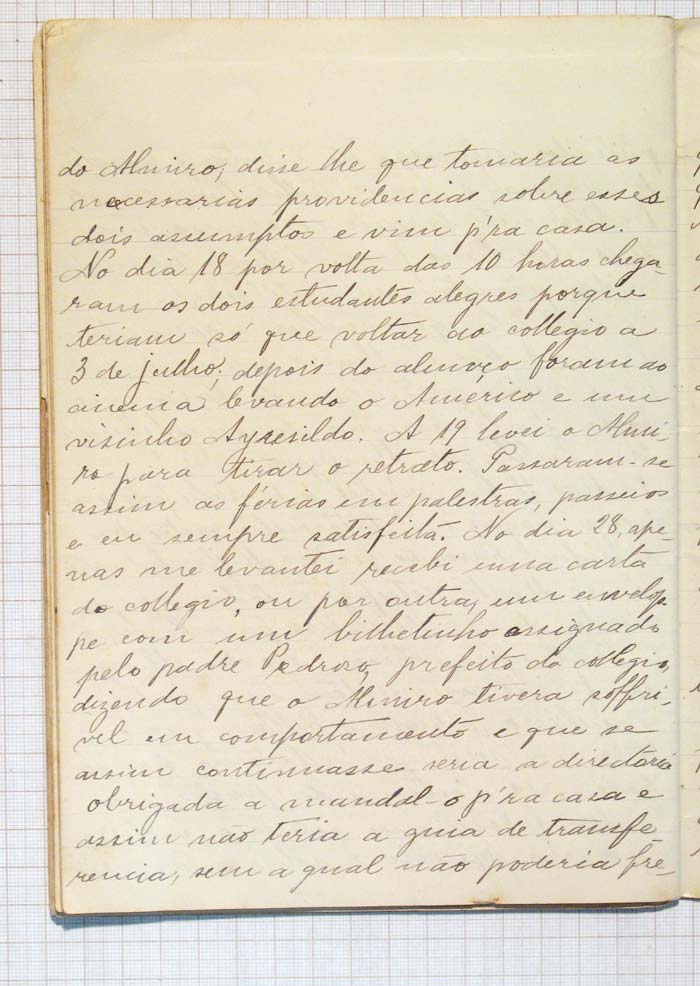 do Almiro, disse lhe que tomaria as
necessarias providencias sobre esses
dois assumptos e vim p'ra casa.
No dia 18 por volta das 10 horas chega-
ram os dois estudantes alegres porque
teriam só que voltar ao collegio a
3 de julho; depois do almoço foram ao
cinema, levando o Américo e um
visinho Ayresildo. A 19 levei o Almi-
ro para tirar o retrato. Passaram-se
assim as férias em palestras, passeios
e eu sempre satisfeita. No dia 28, ape-
nas me levantei recebi uma carta
do collegio, ou por outra, um envelop-
pe com um bilhetinho assignado
pelo padre Pedroso, prefeito do collegio,
dizendo que o Almiro tivera soffri-
vel em comportamento e que se
assim continuasse seria a directoria
obrigada a mandal-o p'ra casa e
assim não teria a guia de transfe
rencia, sem a qual não poderia fre-